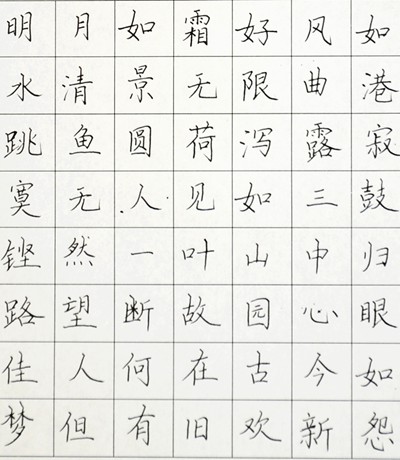 明月如霜好风如
水清景无限曲港
跳鱼圆荷泻露寂
寞无人见如三鼓
铿然一叶山中归
路望断故园心眼
佳人何在古今如
梦但有旧欢新怨